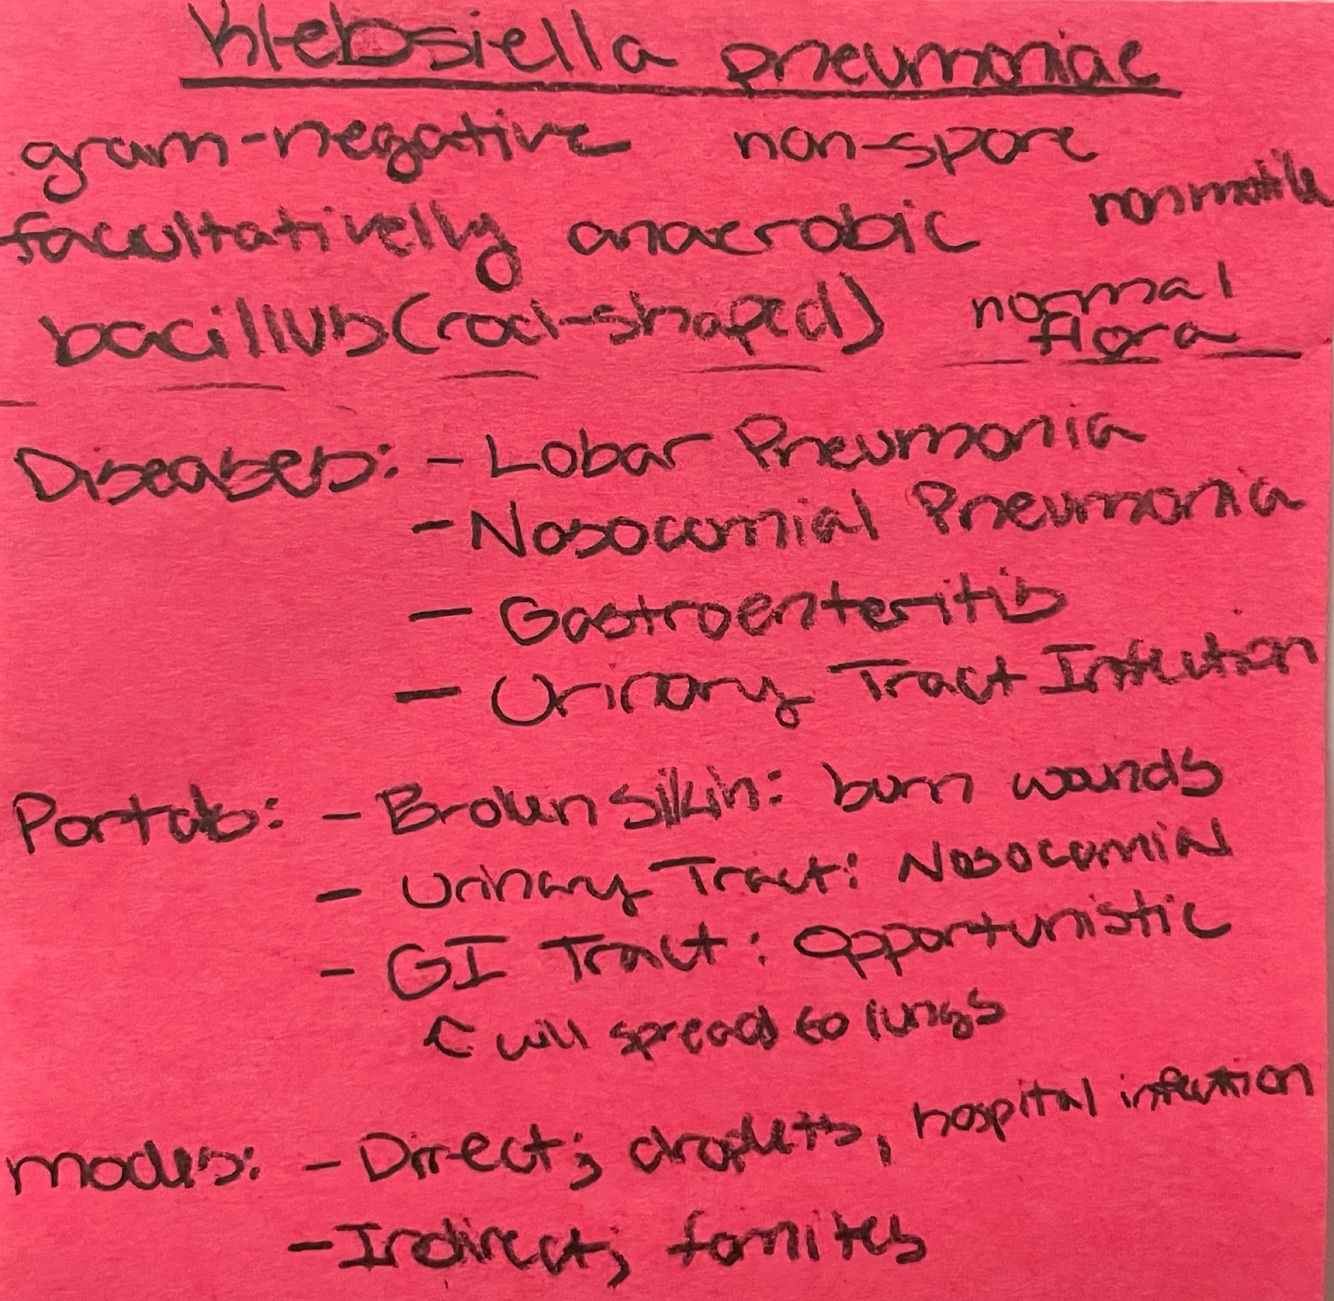 Klebsiella pneumoniae
gram-negative non-spore
facultativelly anaerobic nonmotile
bacillus (rod-shaped) normal flora
Diseases: - Lobar Pneumonia
- Nosocomial Pneumonia
- Gastroenteritis
- Urinary Tract Infection
Portals: - Broken Skin: burn wounds
- Urinary Tract: Nosocomial
- GI Tract: Opportunistic
will spread to lungs
modes: - Direct; droplets, hospital infection
- Indirect; fomites